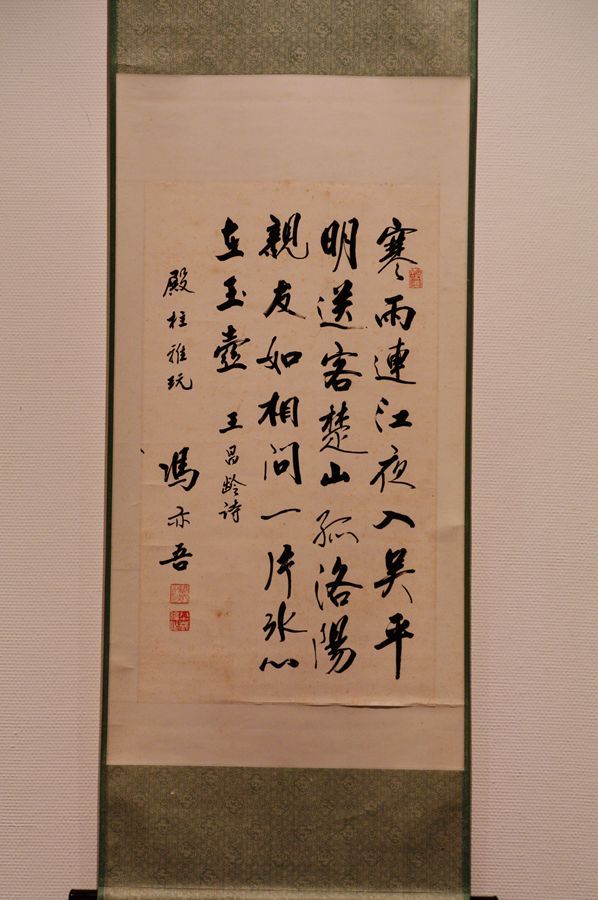 寒雨連江夜入吴平
明送客楚山孤洛陽
親友如相问一片冰心
在玉壺 王昌龄诗
殿柱雅玩
馮亦吾